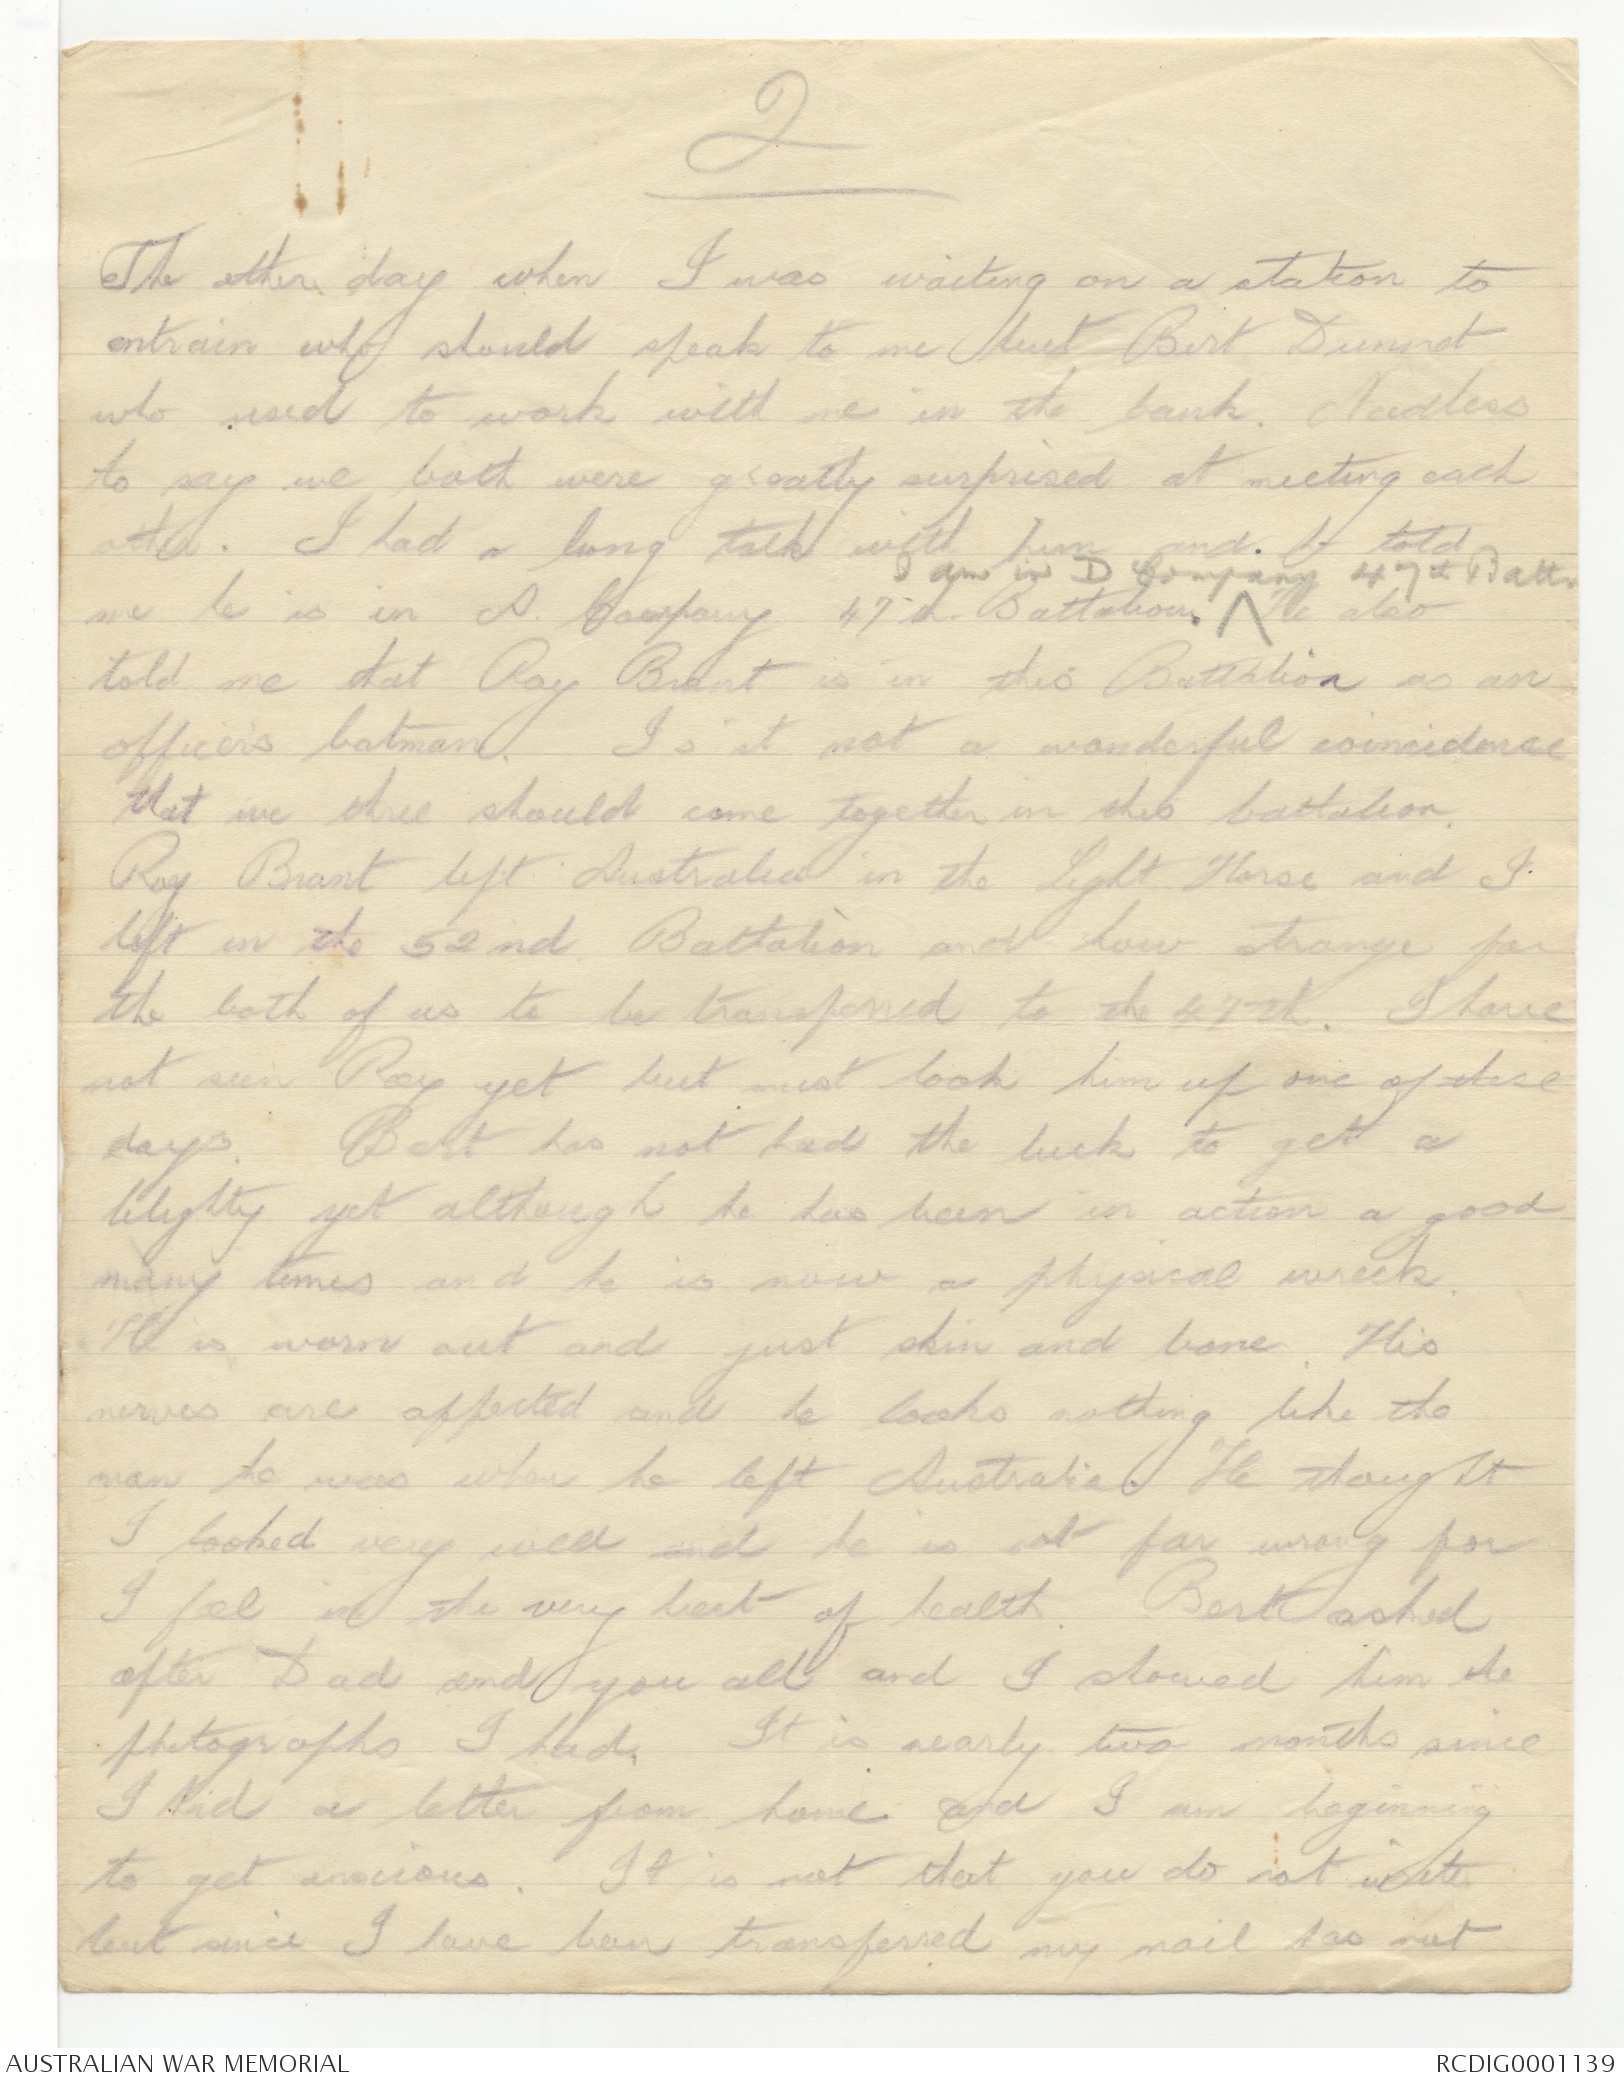 2
The other day when I was waiting on a station to
entrain who should speak to me but Bert
who used to work with me in the bank. Needless
to say we both were greatly surprised at meeting each
other. I had a long talk with him and he told
I am in D Company 47th Battn
me he is in A. Company 47th Battalion. ⋀ He also
told me that Roy Brant is in this Battalion as an
officer's batman. Is it not a wonderful coincidence
that we three should come together in this battalion.
Roy Brant left Australia in the Light Horse and I
left in the 52nd Battalion and how strange for
the both of us to be transferred to the 47th. I have
not seen Roy yet but must look him up one of these
days. Bert has not had the luck to get a
blighty yet although he has been in action a good
many times and he is now a physical wreck.
He is worn out and just skin and bone. His
nerves are affected and he looks nothing like the
man he was when he left Australia. He thought
I looked very well and he is not far wrong for
I feel in the very best of health. Bert asked
after Dad and you all and I showed him the
photographs I had. It is nearly two months since
I had a letter from home and I am beginning
to get anxious. It is not that you do not write
but since I have been transferred my mail has not
AUSTRALIAN WAR MEMORIAL
RCDIG0001139